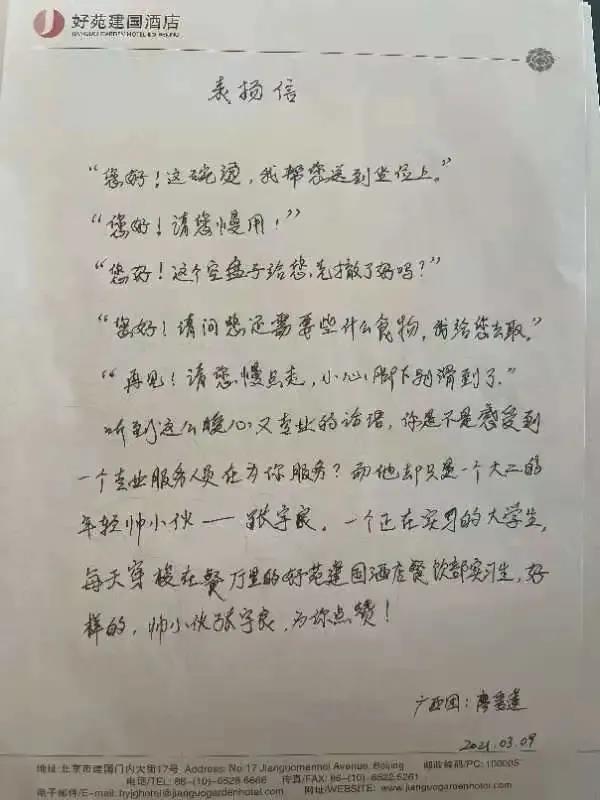 好苑建国酒店
JIANGUO GARDEN HOTEL BEIJING
表扬信
“您好！这碗烫，我帮您送到坐位上。”
“您好！请您慢用！”
“您好！这个空盘子给您先撤了好吗？”
“您好！请问您还需要些什么食物，我给您去取。”
“再见！请您慢点走，小心脚下别滑到了。”
听到这么暖心又专业的话语，你是不是感受到
一个专业服务人员在为你服务？而他却只是一个大二的
年轻帅小伙——张宇良，一个正在实习的大学生，
每天穿梭在餐厅里的好苑建国酒店餐饮部实习生，好
样的，帅小伙张宇良，为你点赞！
广西团：廖
2021.03.09
地址:北京市建国门内大街17号 Address: No 17 Jianguomennei Avenue, Beijing 邮政编码/PC: 100005
电话/TEL: 86-(10)-6528 6666 传真/FAX: 86-(10)-6522 5261
电子邮件/E-mail: hyjghotel@jianguogardenhotel.com 网址/WEBSITE: www.jianguogardenhotel.com